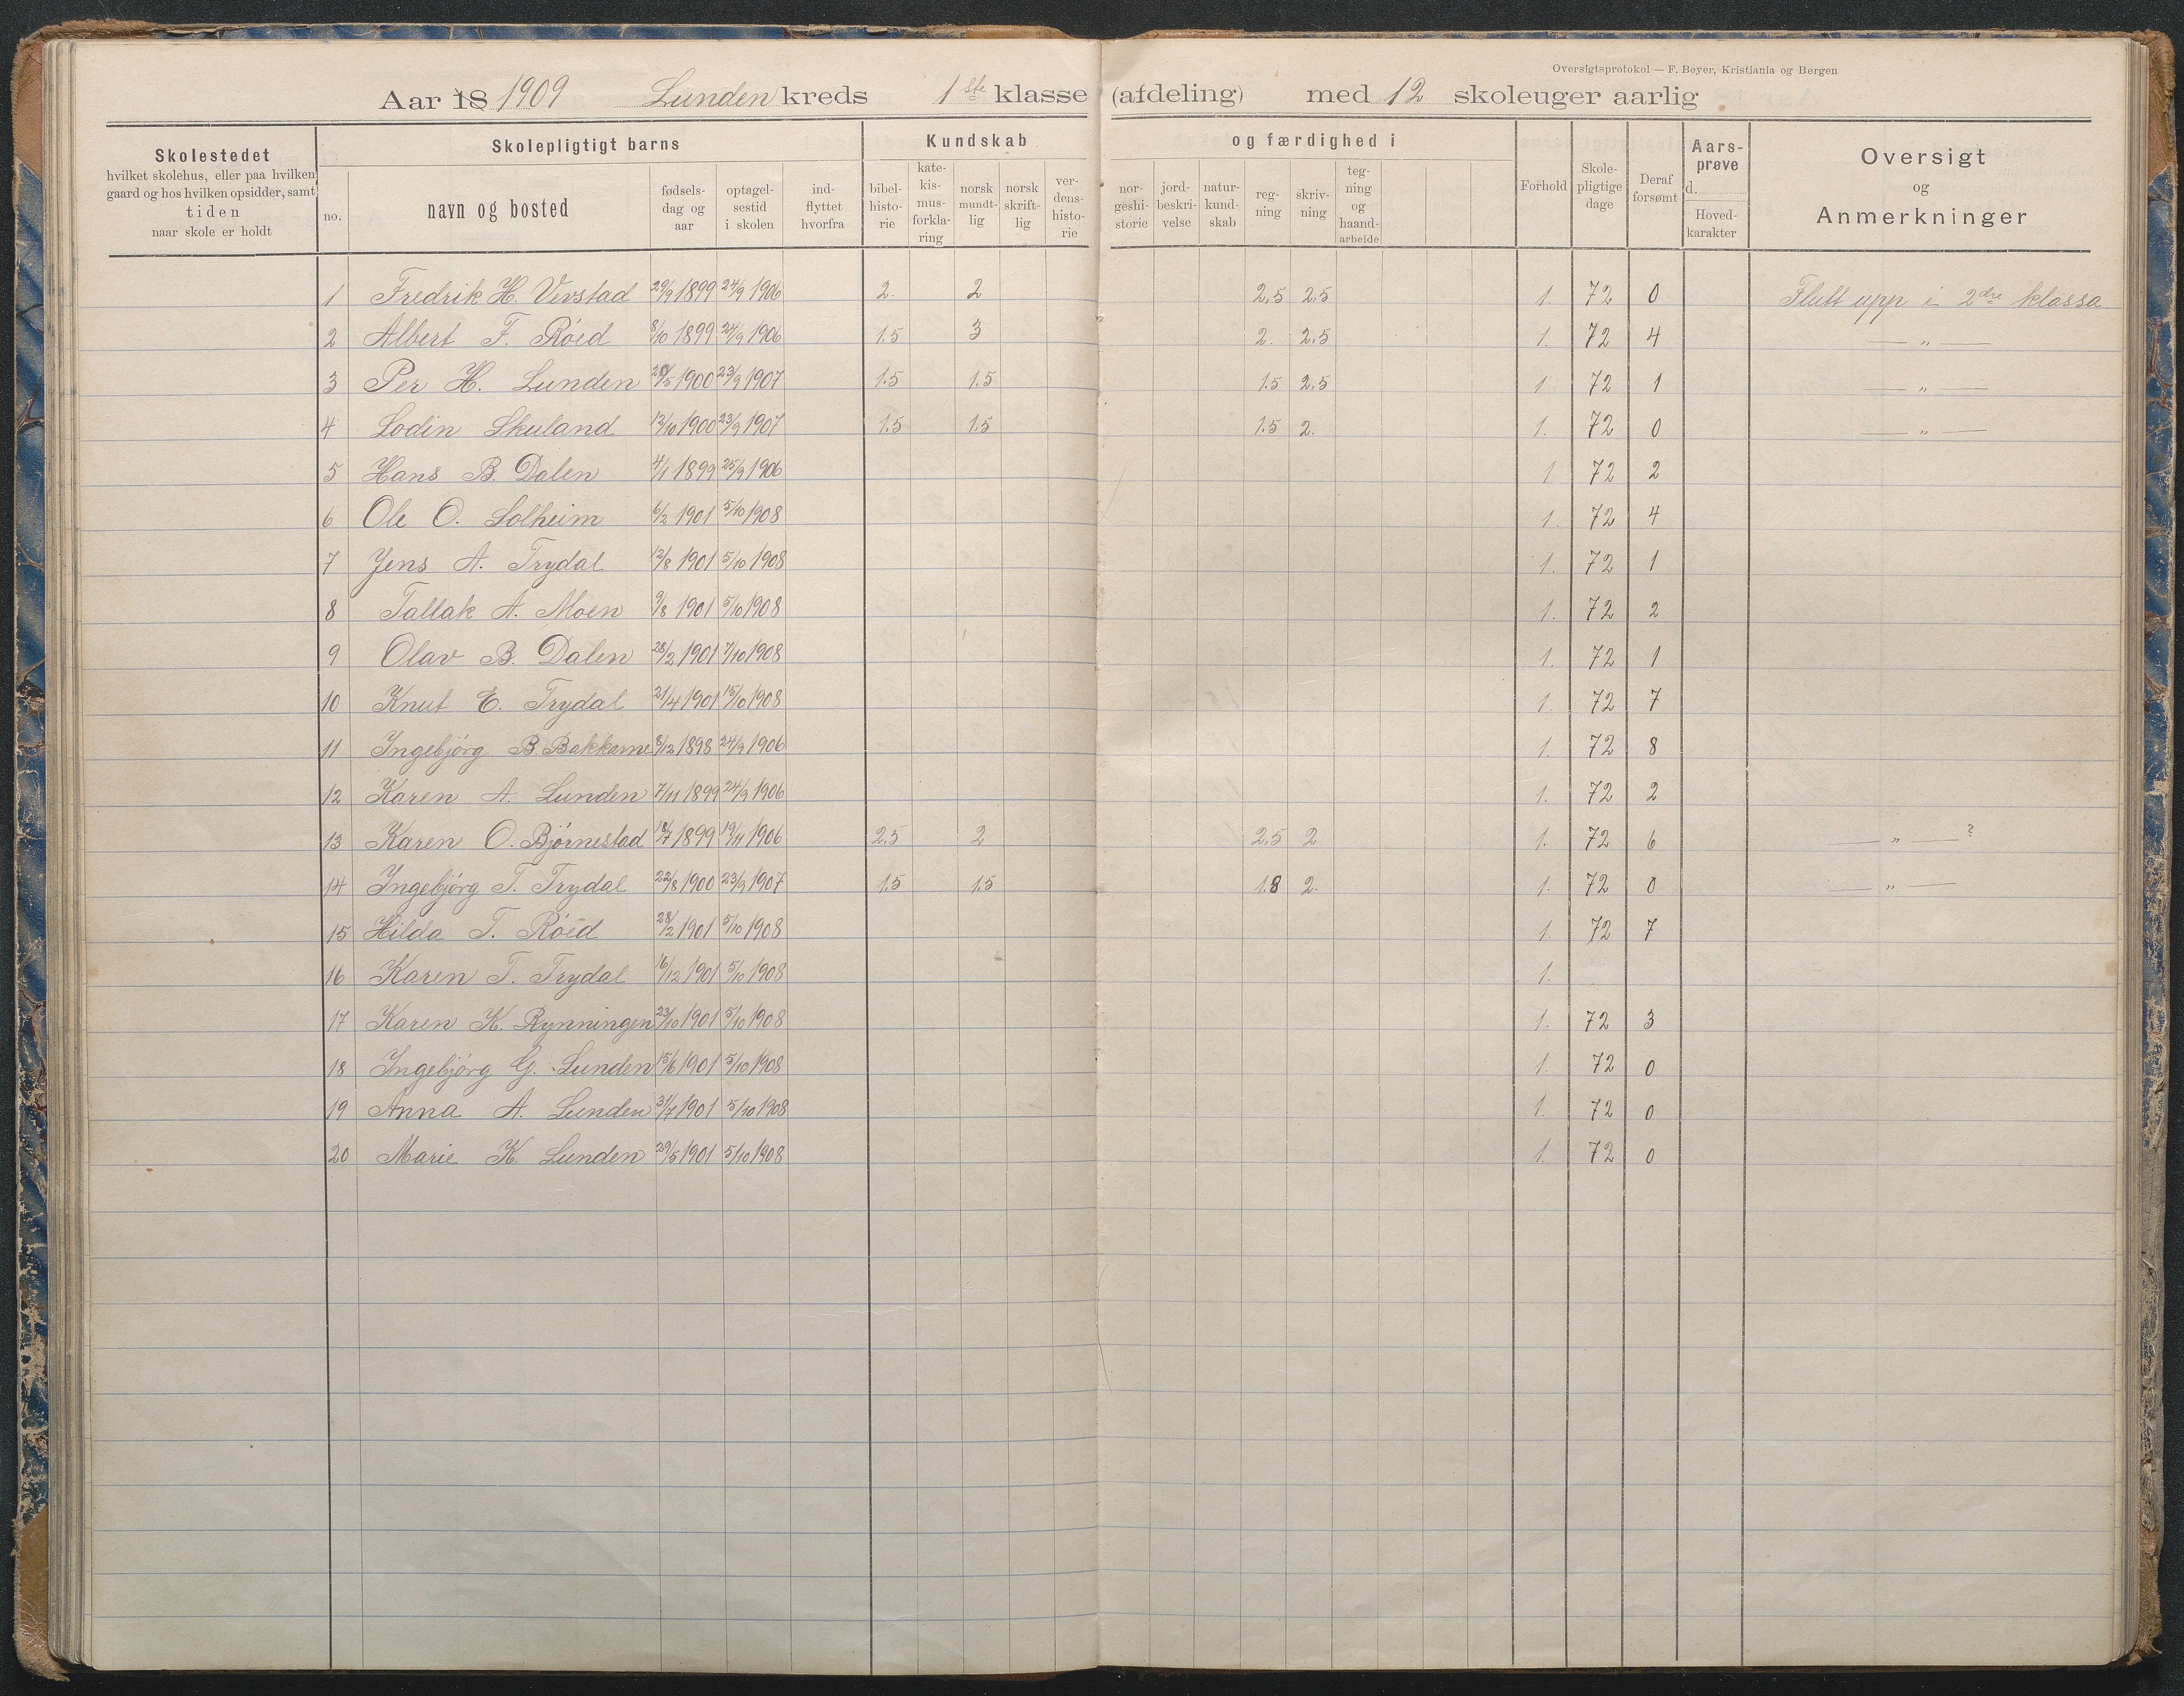 Oversigtsprotokol — F. Beyer, Kristiania og Bergen
Aar 18 1909 Lunden kreds 1ste klasse (afdeling) med 12 skoleuger aarlig
Skolestedet hvilket skolehus, eller paa hvilken gaard og hos hvilken opsidder, samt tiden naar skole er holdt
Skolepligtigt barns
no. navn og bosted fødsels-dag og aar optagel-sestid i skolen ind-flyttet hvorfra
Kundskab og færdighed i
bibel-histo-rie kate-kis-mus-forkla-ring norsk mundt-lig norsk skrift-lig ver-dens-histo-rie nor-geshi-storie jord-beskri-velse natur-kund-skab reg-ning skriv-ning teg-ning og haand-arbeide
Forhold Skole-pligtige dage Deraf forsømt Aars-prøve d. Hoved-karakter
Oversigt og Anmerkninger
1 Fredrik H. Verstad 29/9 1899 24/9 1906 2. 2 2,5 2.5 1. 72 0 Flutt upp i 2dre klassa
2 Albert F. Röed 8/10 1899 24/9 1906 1.5 3 2. 2,5 1. 72 4 — „ —
3 Per H. Lunden 20/5 1900 23/9 1907 1.5 1.5 1.5 2,5 1 72 1 — „ —
4 Lodin Skuland 12/10 1900 23/9 1907 1.5 1.5 1.5 2. 1. 72 0 — „ —
5 Hans B. Dalen 4/1 1899 25/9 1906 1 72 2
6 Ole O. Solheim 6/2 1901 5/10 1908 1. 72 4
7 Jens A. Trydal 12/8 1901 5/10 1908 1. 72 1
8 Tallak A. Moen 9/8 1901 5/10 1908 1. 72 2
9 Olav B. Dalen 28/2 1901 7/10 1908 1. 72 1
10 Knut E. Trydal 21/4 1901 15/10 1908 1. 72 7
11 Ingebjörg B. Bakkarne 8/12 1898 24/9 1906 1. 72 8
12 Karen A. Lunden 7/11 1899 24/9 1906 1. 72 2
13 Karen O. Björnestad 18/7 1899 19/11 1906 2,5 2 2,5 2 1. 72 6 — „ — ?
14 Ingebjörg T. Trydal 22/8 1900 23/9 1907 1.5 1.5 1.8 2. 1. 72 0 — „ —
15 Hilda T. Röed 28/2 1901 5/10 1908 1. 72 7
16 Karen T. Trydal 16/12 1901 5/10 1908 1.
17 Karen K. Rynningen 23/10 1901 5/10 1908 1. 72 3
18 Ingebjörg G. Lunden 15/6 1901 5/10 1908 1. 72 0
19 Anna A. Lunden 31/7 1901 5/10 1908 1. 72 0
20 Marie K. Lunden 29/5 1901 5/10 1908 1. 72 0